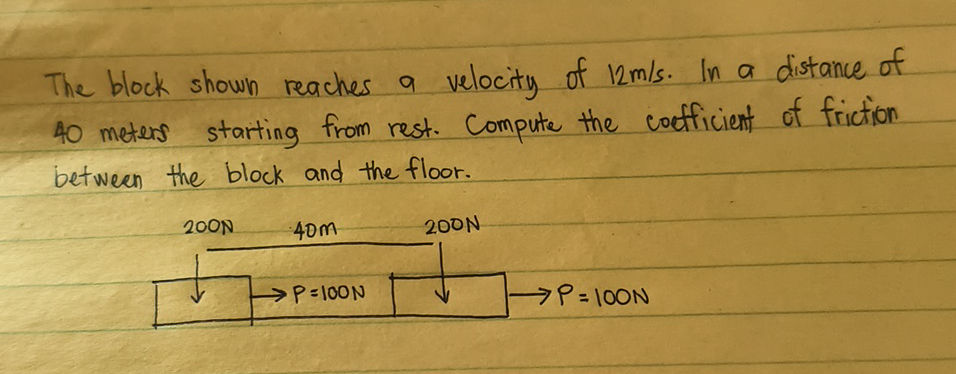 The block shown reaches a velocity of 12m/s. In a distance of
40 meters starting from rest. Compute the coefficient of friction
between the block and the floor.
200N 40m 200N
P=100N P=100N